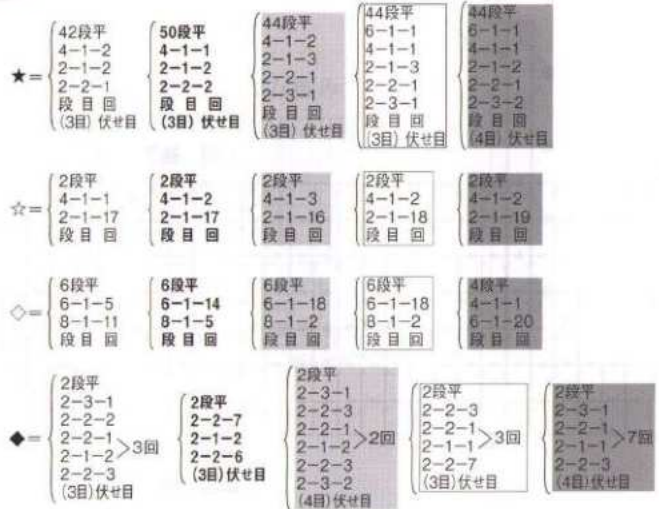 ★=
42段平
4-1-2
2-1-2
2-2-1
段 目 回
(3目) 伏せ目
50段平
4-1-1
2-1-2
2-2-2
段 目 回
(3目) 伏せ目
44段平
4-1-2
2-1-3
2-2-1
2-3-1
段 目 回
(3目) 伏せ目
44段平
6-1-1
4-1-1
2-1-3
2-2-1
2-3-1
段 目 回
(3目) 伏せ目
44段平
6-1-1
4-1-1
2-1-2
2-2-1
2-3-2
段 目 回
(4目) 伏せ目
☆=
2段平
4-1-1
2-1-17
段 目 回
2段平
4-1-2
2-1-17
段 目 回
2段平
4-1-3
2-1-16
段 目 回
2段平
4-1-2
2-1-18
段 目 回
2段平
4-1-2
2-1-19
段 目 回
◇=
6段平
6-1-5
8-1-11
段 目 回
6段平
6-1-14
8-1-5
段 目 回
6段平
6-1-18
8-1-2
段 目 回
6段平
6-1-18
8-1-2
段 目 回
4段平
4-1-1
6-1-20
段 目 回
◆=
2段平
2-3-1
2-2-2
2-2-1
2-1-2 >3回
2-2-3
(3目)伏せ目
2段平
2-2-7
2-1-2
2-2-6
(3目)伏せ目
2段平
2-3-1
2-2-3
2-2-1
2-1-2 >2回
2-2-3
2-3-2
(4目)伏せ目
2段平
2-2-3
2-2-1
2-1-1 >3回
2-2-7
(3目)伏せ目
2段平
2-3-1
2-2-1
2-1-1 >7回
2-2-3
(4目)伏せ目